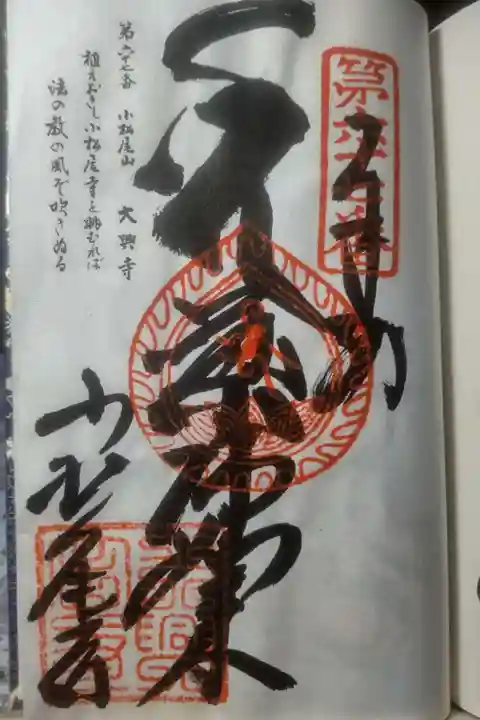 第六十七番
奉納
薬師如来
第六十七番 小松尾山 大興寺
植えおきし小松尾寺を眺むれば
法の教の風ぞ吹きぬる
小松尾寺